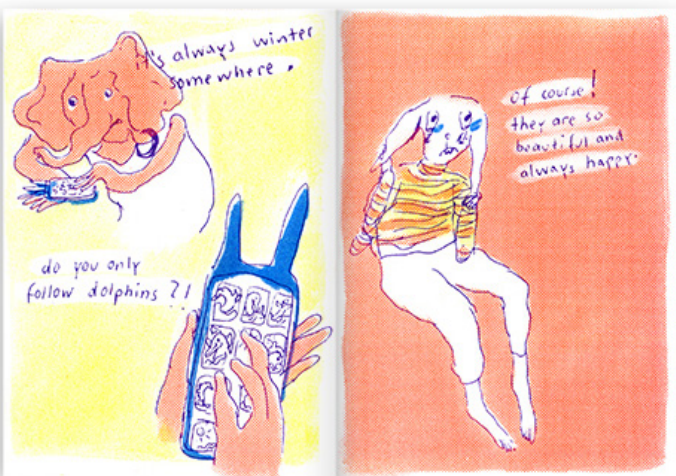 it's always winter
somewhere.
do you only
follow dolphins?!
of course!
they are so
beautiful and
always happy.